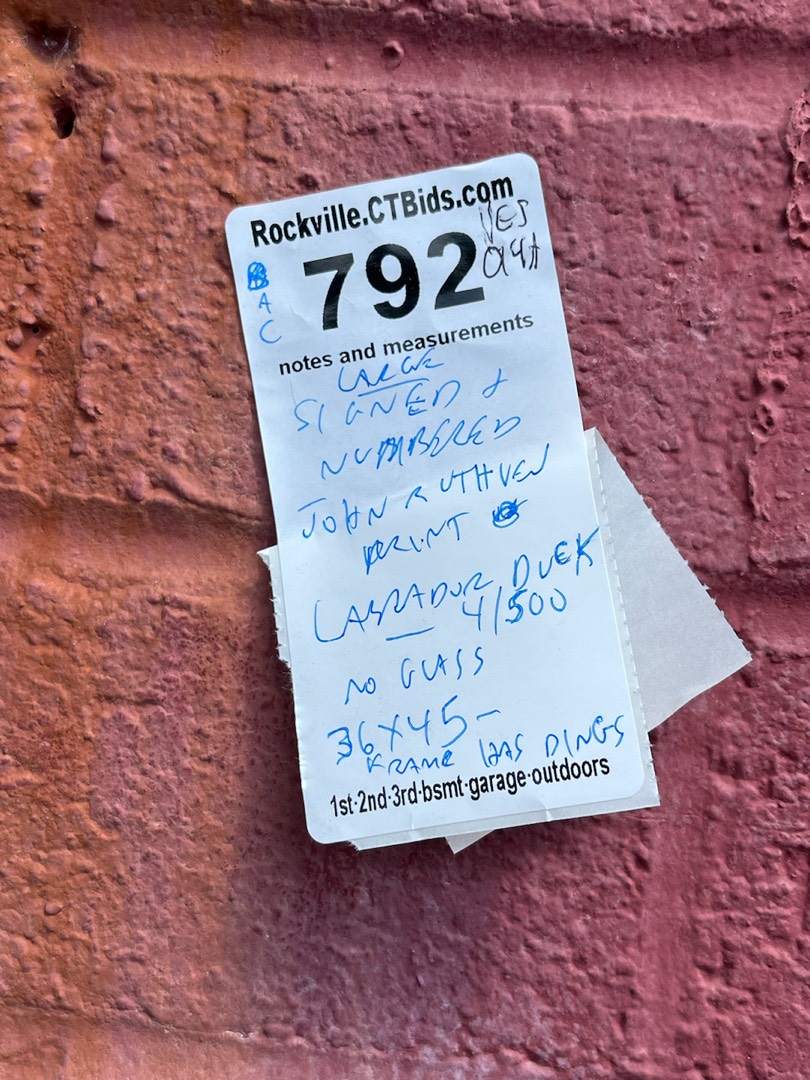 Rockville.CTBids.com
YES
A
C
792
notes and measurements
LARGE
SIGNED +
NUMBERED
JOHN RUTHVEN
PRINT
LABRADOR DUCK
— 4/500
NO GLASS
36X45-
FRAME HAS DINGS
1st·2nd·3rd·bsmt·garage·outdoors